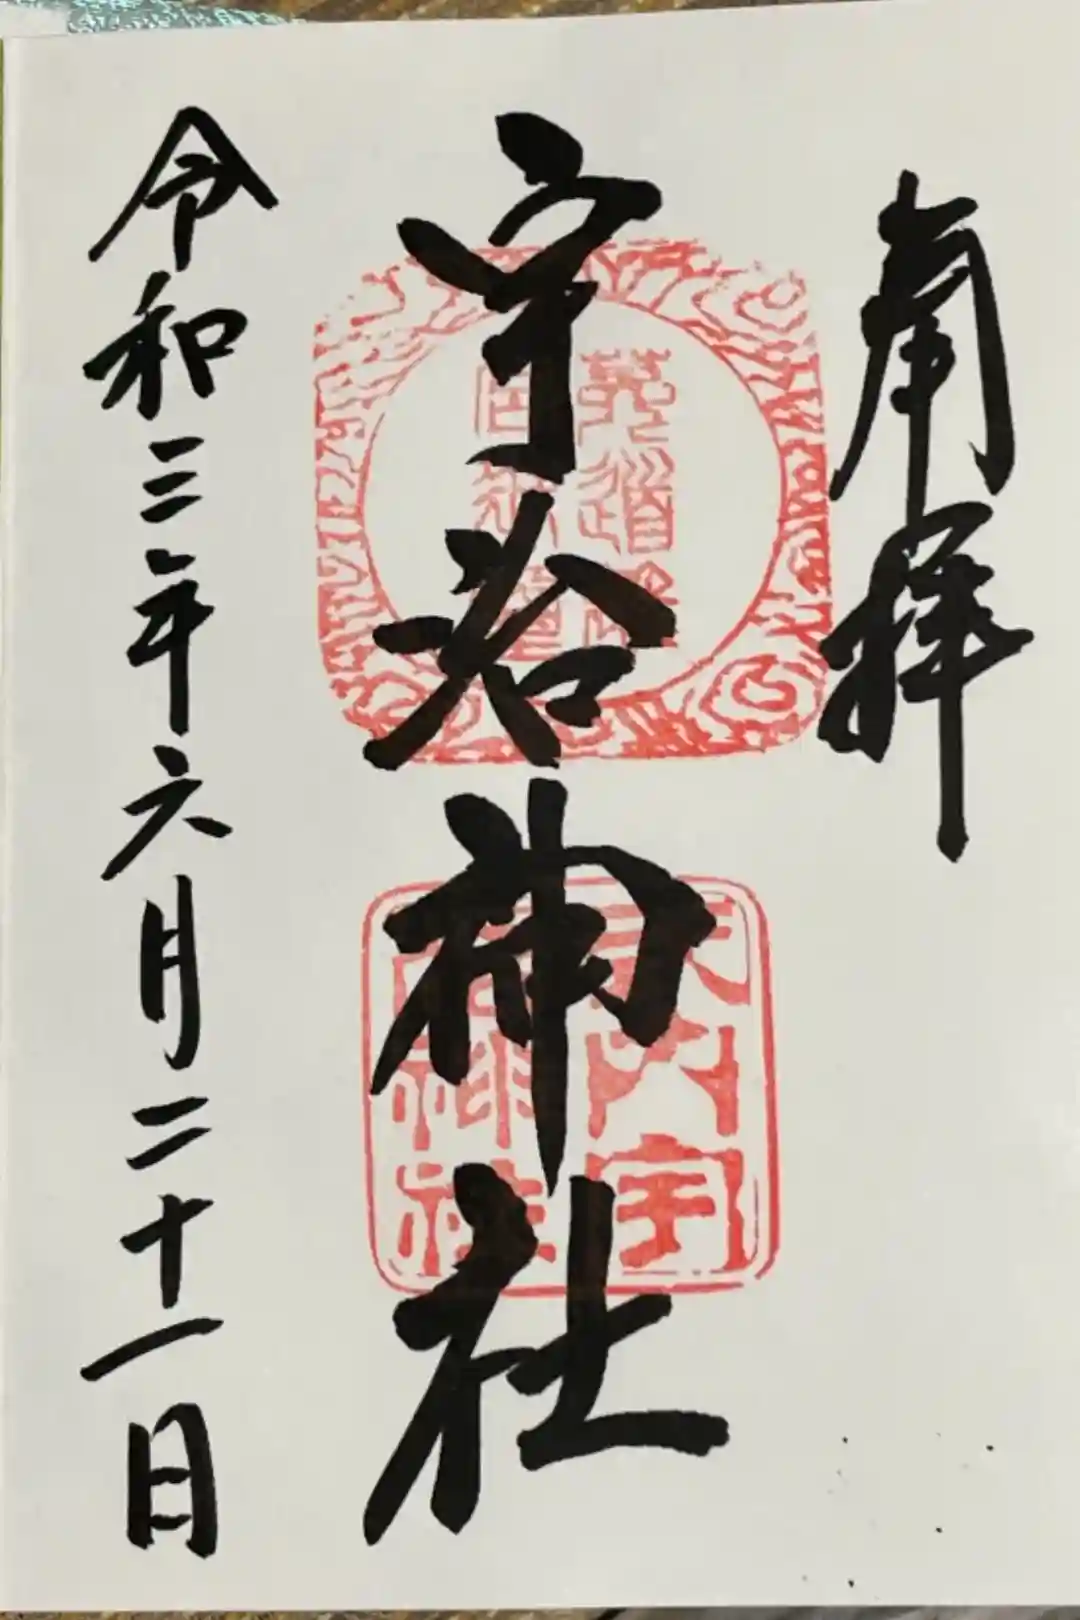 奉拝
宇治神社
令和三年六月二十一日